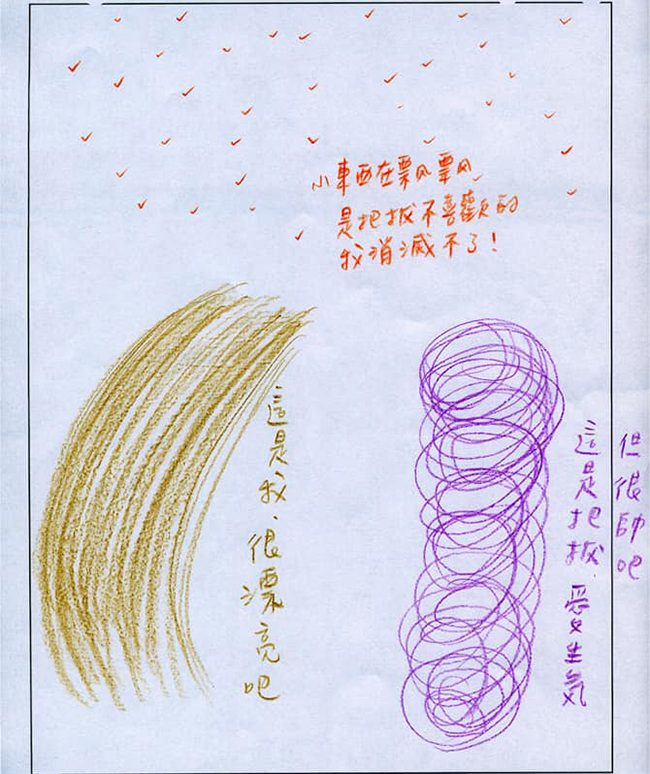 小東西在飄飄
是把拔不喜歡的
我消滅不了!
這是我、
很漂亮吧
這是把拔 愛生氣
但很帥吧